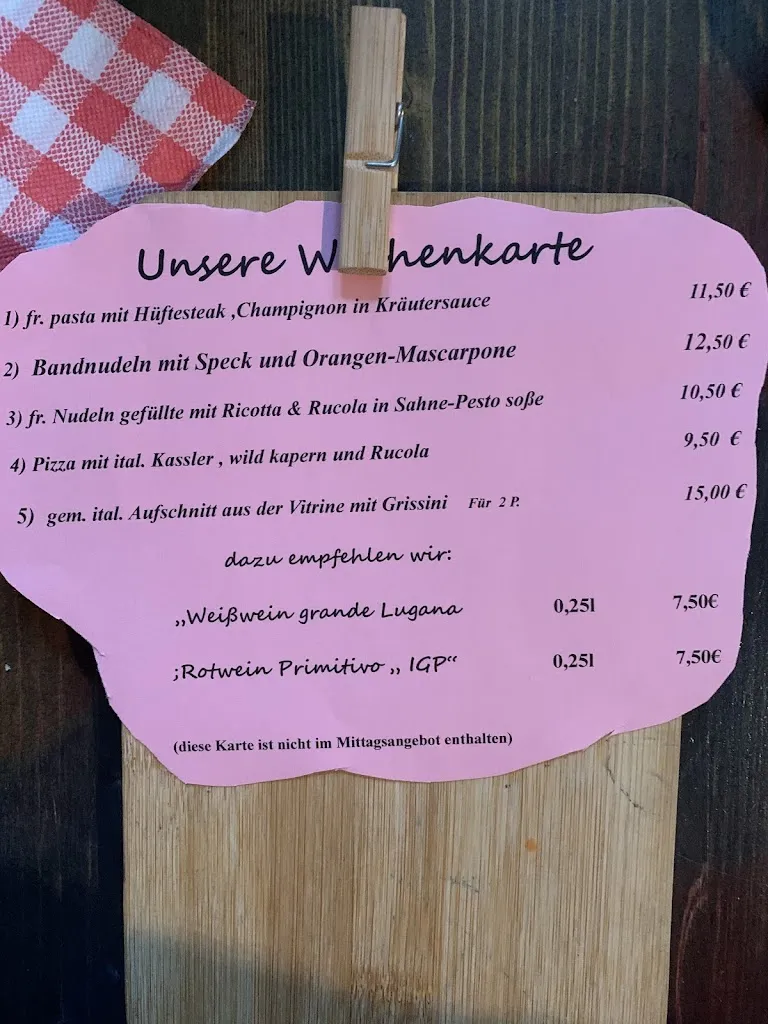 Unsere W henkarte
1) fr. pasta mit Hüftesteak ,Champignon in Kräutersauce 11,50 €
2) Bandnudeln mit Speck und Orangen-Mascarpone 12,50 €
3) fr. Nudeln gefüllte mit Ricotta & Rucola in Sahne-Pesto soße 10,50 €
4) Pizza mit ital. Kassler , wild kapern und Rucola 9,50 €
5) gem. ital. Aufschnitt aus der Vitrine mit Grissini Für 2 P. 15,00 €
dazu empfehlen wir:
„Weißwein grande Lugana 0,25l 7,50€
;Rotwein Primitivo „ IGP“ 0,25l 7,50€
(diese Karte ist nicht im Mittagsangebot enthalten)